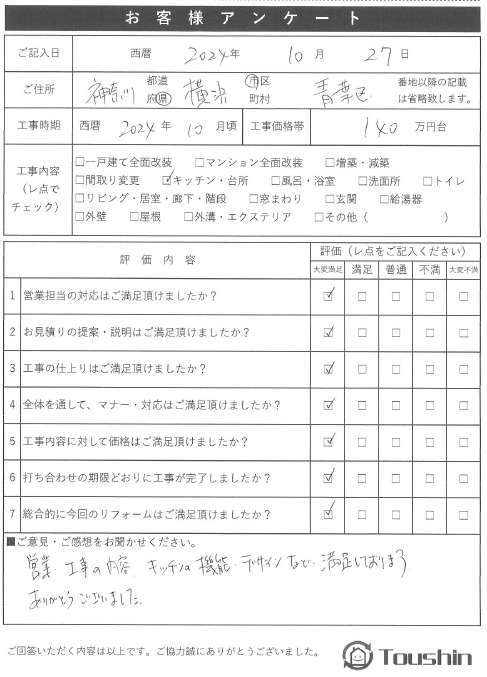 お客様アンケート
ご記入日 西暦 2024年 10月 27日
ご住所 神奈川 都道府県 横浜 市区町村 青葉区 番地以降の記載は省略致します。
工事時期 西暦 2024年 10月頃 工事価格帯 140万円台
工事内容（レ点でチェック）
□一戸建て全面改装 □マンション全面改装 □増築・減築
□間取り変更 ☑キッチン・台所 □風呂・浴室 □洗面所 □トイレ
□リビング・居室・廊下・階段 □窓まわり □玄関 □給湯器
□外壁 □屋根 □外溝・エクステリア □その他（ ）
評価内容 評価（レ点をご記入ください）
大変満足 満足 普通 不満 大変不満
1 営業担当の対応はご満足頂けましたか？ ☑ □ □ □ □
2 お見積りの提案・説明はご満足頂けましたか？ ☑ □ □ □ □
3 工事の仕上りはご満足頂けましたか？ ☑ □ □ □ □
4 全体を通して、マナー・対応はご満足頂けましたか？ ☑ □ □ □ □
5 工事内容に対して価格はご満足頂けましたか？ ☑ □ □ □ □
6 打ち合わせの期限どおりに工事が完了しましたか？ ☑ □ □ □ □
7 総合的に今回のリフォームはご満足頂けましたか？ ☑ □ □ □ □
■ご意見・ご感想をお聞かせください。
営業 工事の内容 キッチンの機能・デザインなど、満足しております
ありがとうございました。
ご回答いただく内容は以上です。ご協力誠にありがとうございました。
Toushin